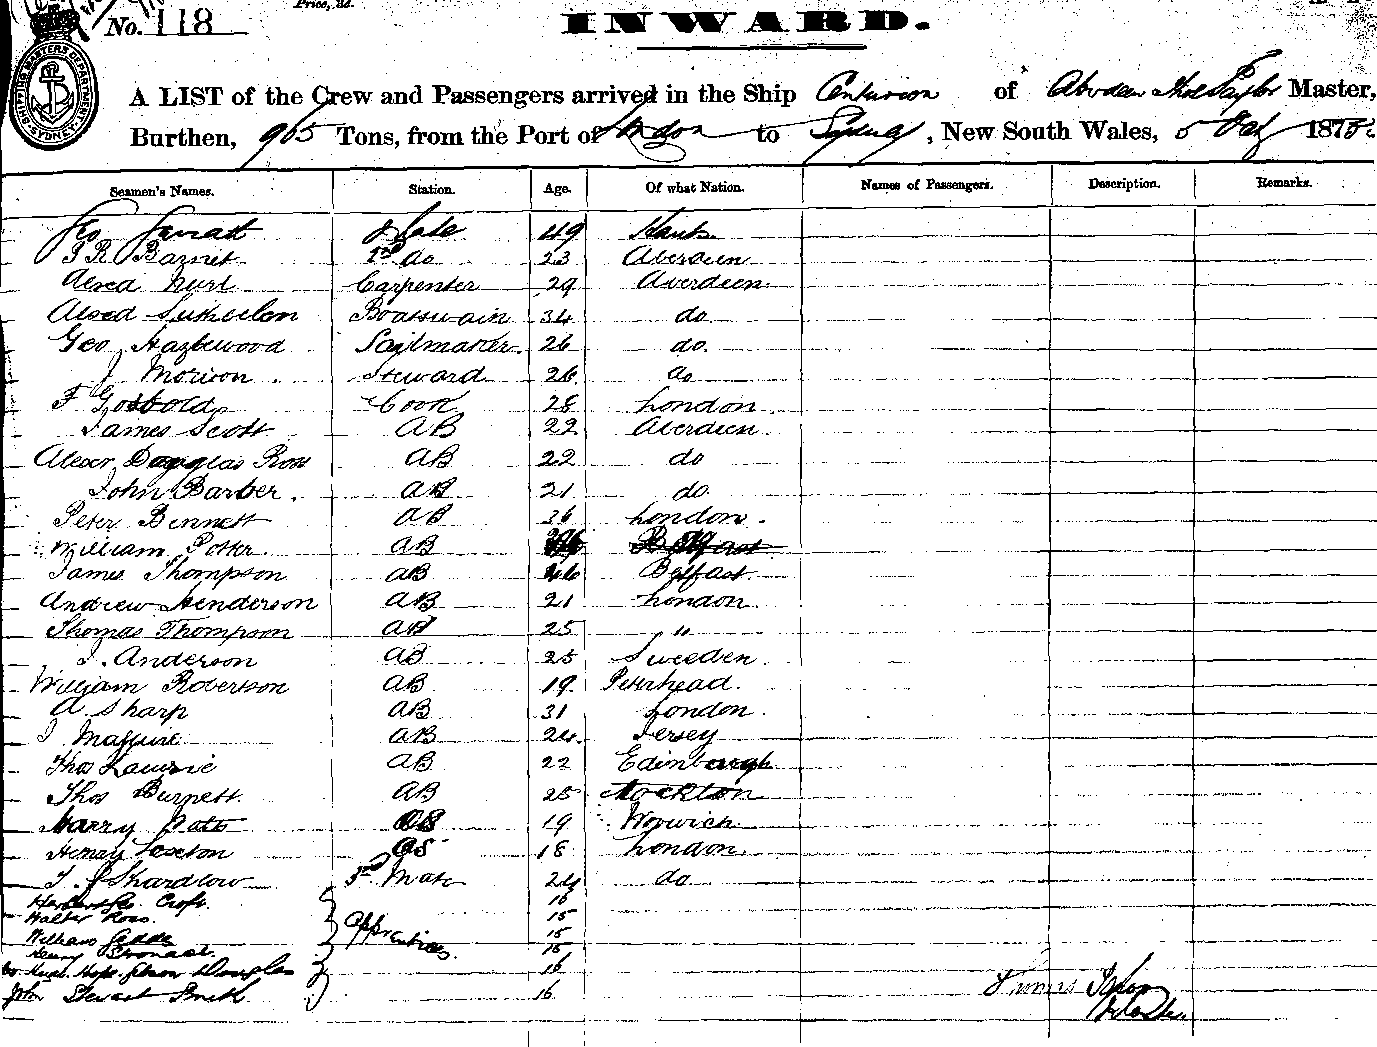 Price, 3d.
No. 118
INWARD.
SHIPPING MASTERS DEPARTMENT SYDNEY
A LIST of the Crew and Passengers arrived in the Ship Centurion of Aberdeen Taylor Master,
Burthen, 965 Tons, from the Port of London to Sydney, New South Wales, 5 187
Seamen's Names. Station. Age. Of what Nation. Names of Passengers. Description. Remarks.
Geo Mate 49
J R Barnet 2nd do 23 Aberdeen
Carpenter 29 Aberdeen
Boatswain 34 do
Geo Hazlewood Sailmaker 26 do.
J Morison Steward 26 do
F Gosbold Cook 28 London
James Scott AB 22 Aberdeen
Alexr Douglas Ross AB 22 do
John Barber. AB 21 do
Peter Bennett AB 36 London.
William Potter AB Belfast
James Thompson AB Belfast
Andrew Henderson AB 21 London
Thomas Thompson AB 25 "
J. Anderson AB 25 Sweeden
William Robertson AB 19 Peterhead.
A Sharp AB 31 London
J Maguire AB 24 Jersey
Thos Lawrie AB 22 Edinburgh
Thos Burnett AB 25 Stockton
Harry 19 Worwich
Henry Sexton OS 18 London
T. J Shardlow 3rd Mate 24 do
Croft. 16
Walter Ross. Apprentices 15
William 15
Henry Stronach 15
Douglas 16
John Stewart Smith 16